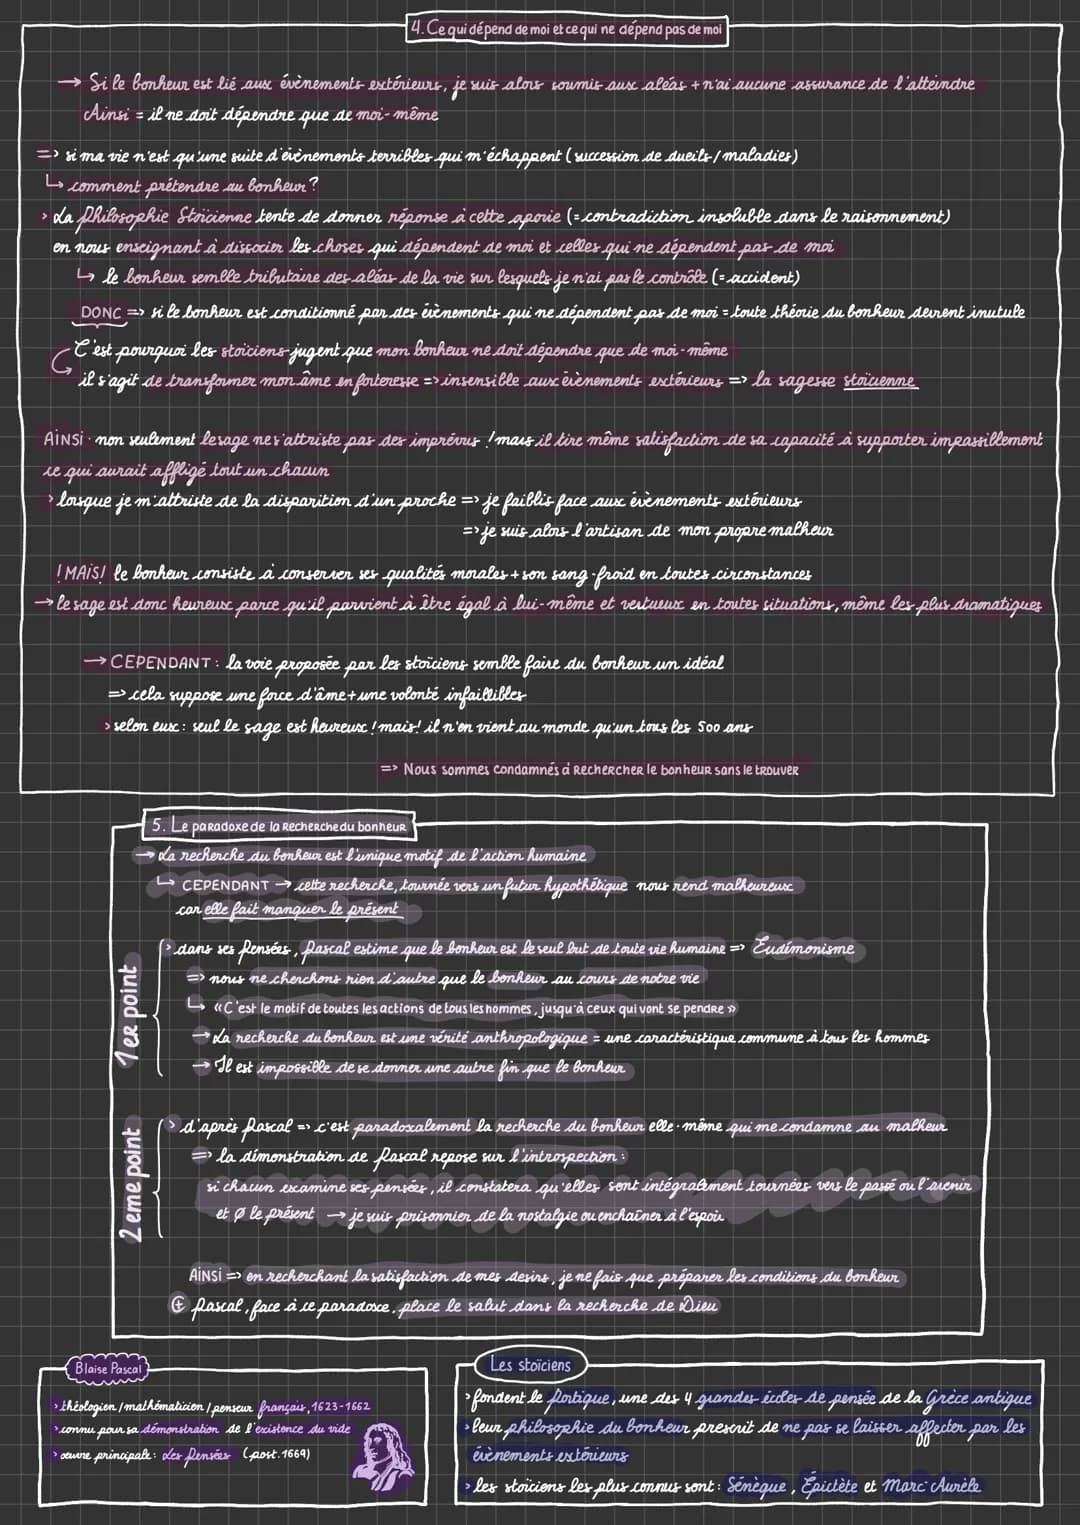 4. Ce qui dépend de moi et ce qui ne dépend pas de moi
→ Si le bonheur est lié aux évènements extérieurs, je suis alors soumis aux aléas + n'ai aucune assurance de l'atteindre
Ainsi = il ne doit dépendre que de moi-même
=> si ma vie n'est qu'une suite d'évènements terribles qui m'échappent (succession de dueils/maladies)
↳ comment prétendre au bonheur ?
> La Philosophie Stoïcienne tente de donner réponse à cette aporie (= contradiction insoluble dans le raisonnement)
en nous enseignant à dissocier les choses qui dépendent de moi et celles qui ne dépendent pas de moi
↳ le bonheur semble tributaire des aléas de la vie sur lesquels je n'ai pas le contrôle (= accident)
DONC => si le bonheur est conditionné par des évènements qui ne dépendent pas de moi = toute théorie du bonheur devient inutule
C'est pourquoi les stoïciens jugent que mon bonheur ne doit dépendre que de moi-même
il s'agit de transformer mon âme en forteresse => insensible aux évènements extérieurs => la sagesse stoïcienne
AINSI · non seulement le sage ne s'attriste pas des imprévus ! mais il tire même satisfaction de sa capacité à supporter impassiblement
ce qui aurait affligé tout un chacun
> lorsque je m'attriste de la disparition d'un proche => je faiblis face aux évènements extérieurs
=> je suis alors l'artisan de mon propre malheur
! MAIS! le bonheur consiste à conserver ses qualités morales + son sang-froid en toutes circonstances
→ le sage est donc heureux parce qu'il parvient à être égal à lui-même et vertueux en toutes situations, même les plus dramatiques
→ CEPENDANT : la voie proposée par les stoïciens semble faire du bonheur un idéal
=> cela suppose une force d'âme + une volonté infaillibles
> selon eux : seul le sage est heureux ! mais! il n'en vient au monde qu'un tous les 500 ans
=> Nous sommes condamnés à rechercher le bonheur sans le trouver
5. Le paradoxe de la recherche du bonheur
→ La recherche du bonheur est l'unique motif de l'action humaine
↳ CEPENDANT → cette recherche, tournée vers un futur hypothétique nous rend malheureux
car elle fait manquer le présent
1er point
> dans ses Pensées, Pascal estime que le bonheur est le seul but de toute vie humaine => Eudémonisme
=> nous ne cherchons rien d'autre que le bonheur au cours de notre vie
↳ «C'est le motif de toutes les actions de tous les hommes, jusqu'à ceux qui vont se pendre »
→ La recherche du bonheur est une vérité anthropologique = une caractéristique commune à tous les hommes
→ Il est impossible de se donner une autre fin que le bonheur
2eme point
> d'après Pascal => c'est paradoxalement la recherche du bonheur elle-même qui me condamne au malheur
=> la démonstration de Pascal repose sur l'introspection :
si chacun examine ses pensées, il constatera qu'elles sont intégralement tournées vers le passé ou l'avenir
et Ø le présent → je suis prisonnier de la nostalgie ou enchaîner à l'espoir
AINSI => en recherchant la satisfaction de mes desirs, je ne fais que préparer les conditions du bonheur
⊕ Pascal, face à ce paradoxe, place le salut dans la recherche de Dieu
Blaise Pascal
> théologien/mathématicien/penseur français, 1623-1662
> connu pour sa démonstration de l'existence du vide
> œuvre principale : Les Pensées (post. 1669)
Les stoïciens
> fondent le Portique, une des 4 grandes écoles de pensée de la Grèce antique
> leur philosophie du bonheur prescrit de ne pas se laisser affecter par les
évènements extérieurs
> les stoïciens les plus connus sont : Sénèque, Épictète et Marc Aurèle